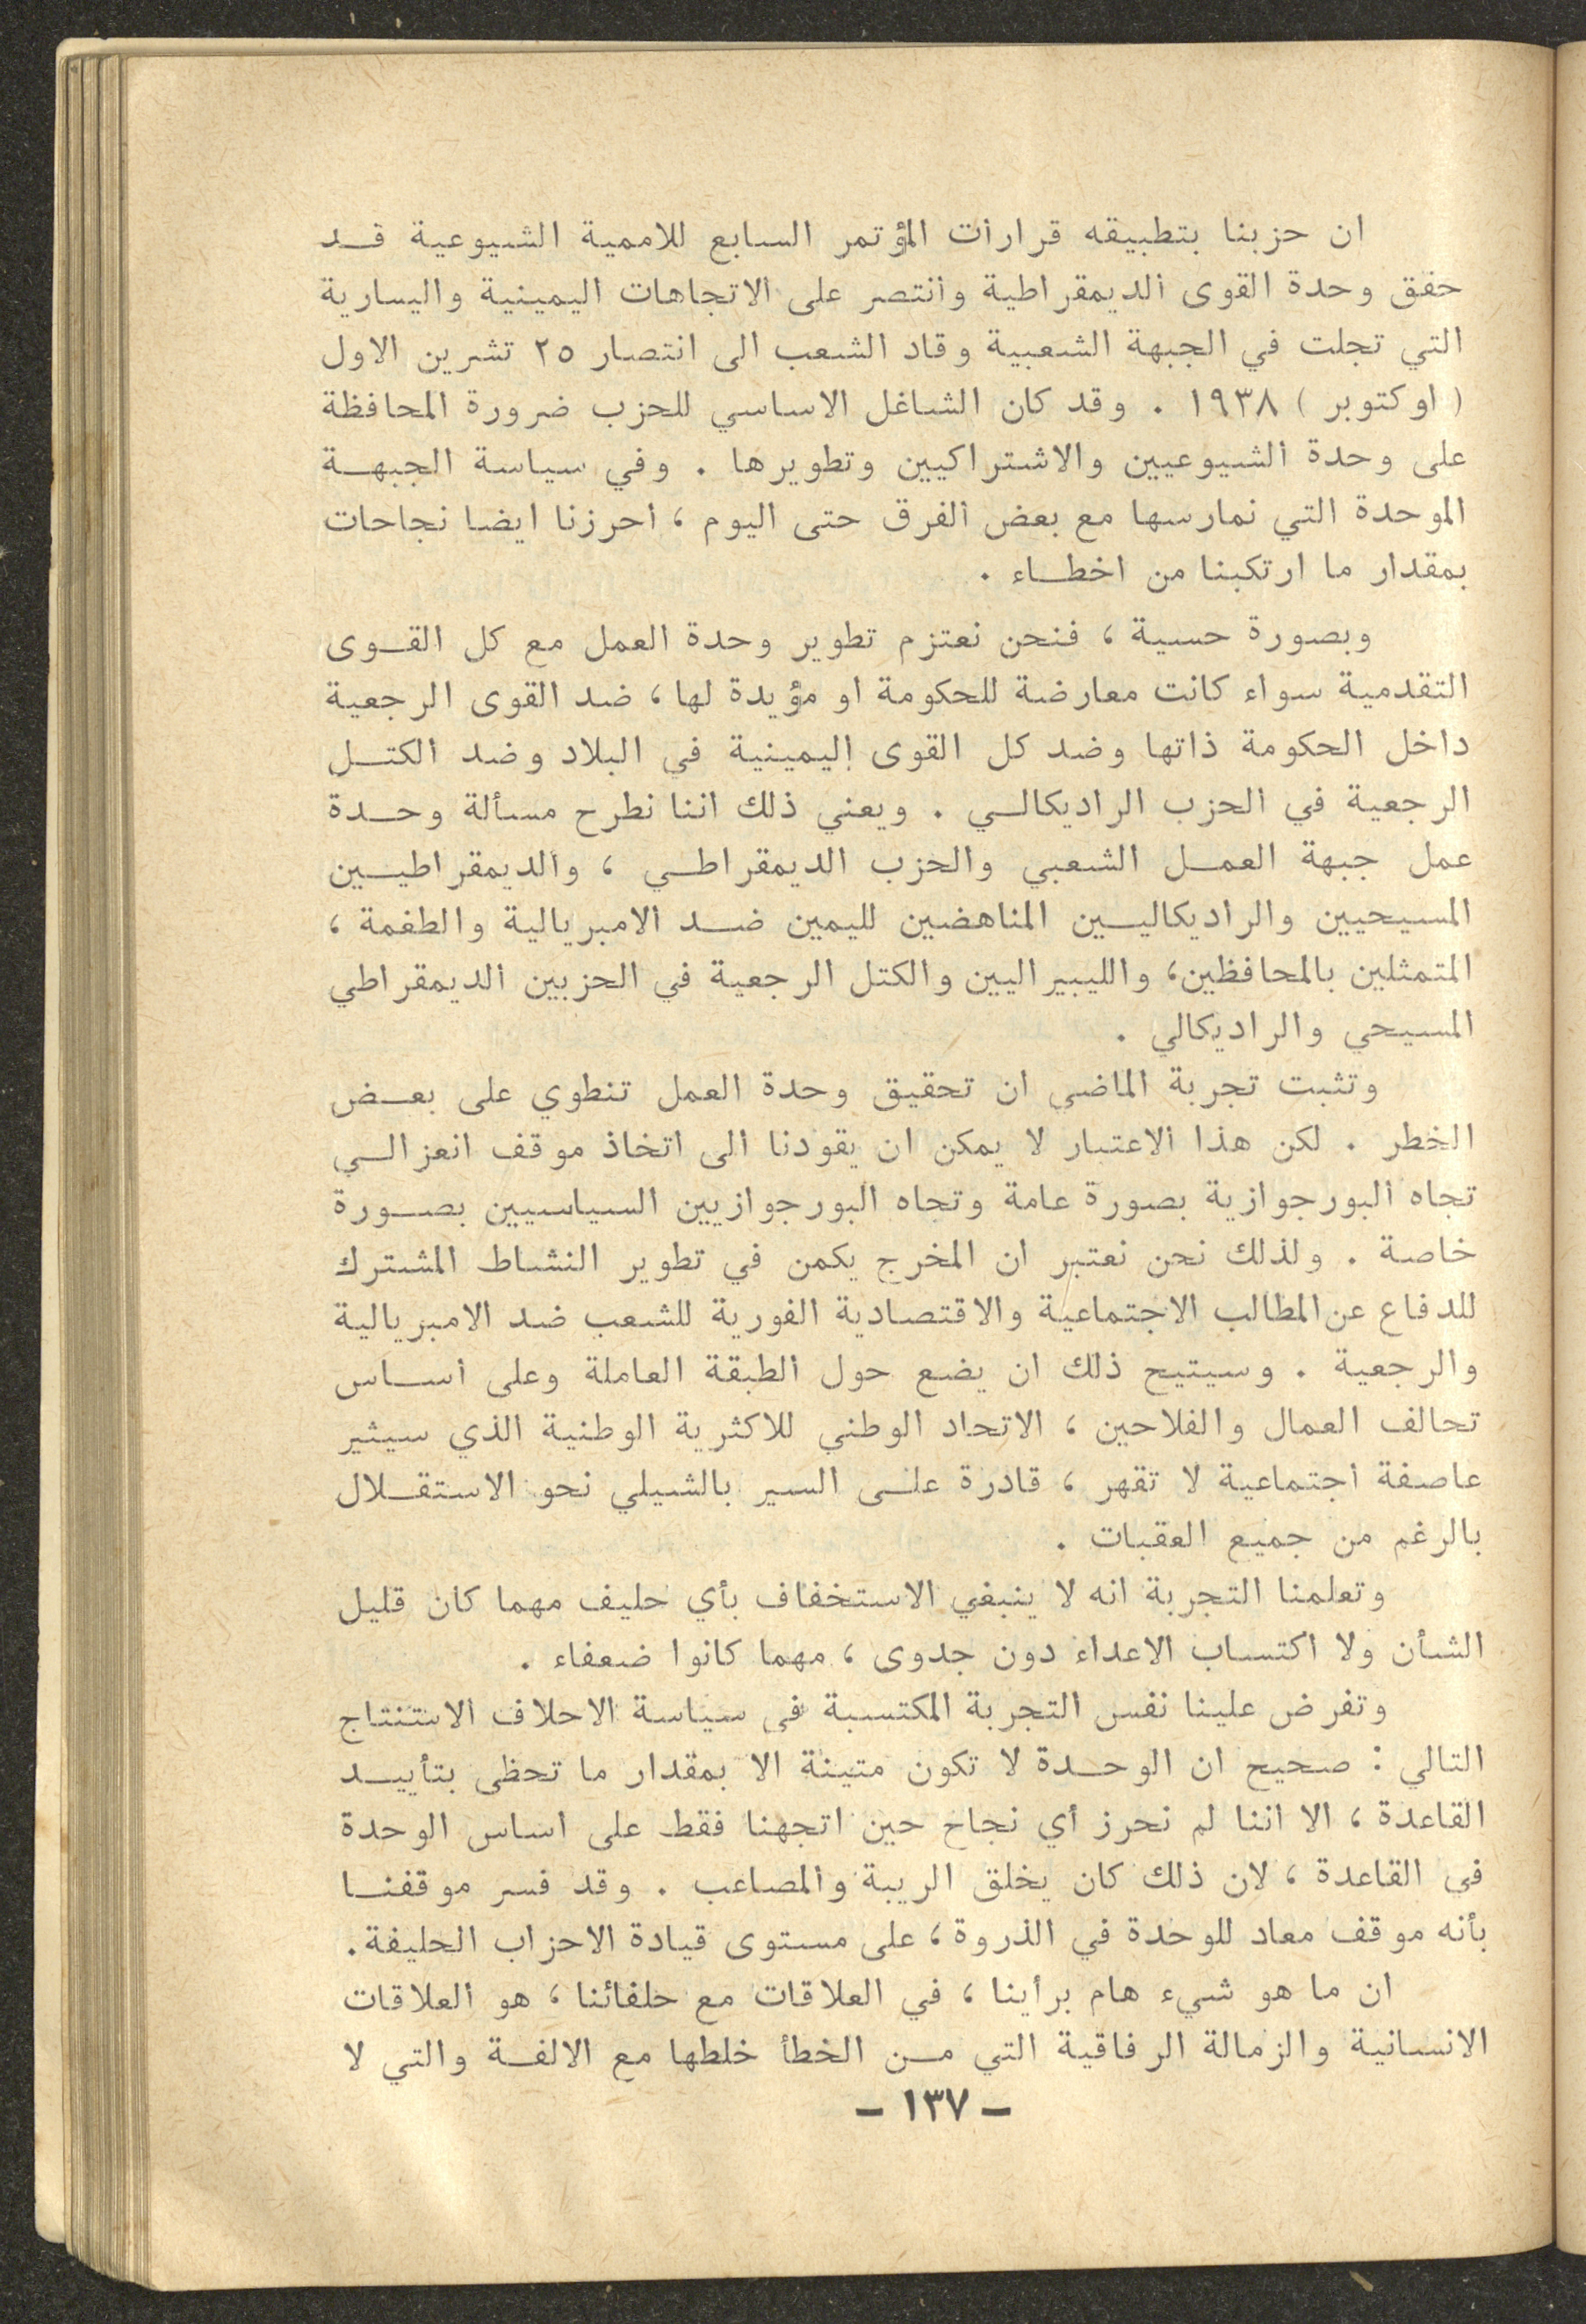 ان حزبنا بتطبيقه قرارات المؤتمر السابع للاممية الشيوعية قد
حقق وحدة القوى الديمقراطية وانتصر على الاتجاهات اليمينية واليسارية
التي تجلت في الجبهة الشعبية وقاد الشعب الى انتصار ٢٥ تشرين الاول
( اوكتوبر ) ١٩٣٨ . وقد كان الشاغل الاساسي للحزب ضرورة المحافظة
على وحدة الشيوعيين والاشتراكيين وتطويرها . وفي سياسة الجبهة
الموحدة التي نمارسها مع بعض الفرق حتى اليوم ، احرزنا ايضا نجاحات
بمقدار ما ارتكبنا من اخطاء .
وبصورة حسية ، فنحن نعتزم تطوير وحدة العمل مع كل القوى
التقدمية سواء كانت معارضة للحكومة او مؤيدة لها ، ضد القوى الرجعية
داخل الحكومة ذاتها وضد كل القوى اليمينية في البلاد وضد الكتل
الرجعية في الحزب الراديكالي . ويعني ذلك اننا نطرح مسألة وحدة
عمل جبهة العمل الشعبي والحزب الديمقراطي ، والديمقراطيين
المسيحيين والراديكاليين المناهضين لليمين ضد الامبريالية والطغمة ،
المتمثلين بالمحافظين، والليبيراليين والكتل الرجعية في الحزبين الديمقراطي
المسيحي والراديكالي .
وتثبت تجربة الماضي ان تحقيق وحدة العمل تنطوي على بعض
الخطر . لكن هذا الاعتبار لا يمكن ان يقودنا الى اتخاذ موقف انعزالي
تجاه البورجوازية بصورة عامة وتجاه البورجوازيين السياسيين بصورة
خاصة . ولذلك نحن نعتبر ان المخرج يكمن في تطوير النشاط المشترك
للدفاع عن المطالب الاجتماعية والاقتصادية الفورية للشعب ضد الامبريالية
والرجعية . وسيتيح ذلك ان يضع حول الطبقة العاملة وعلى اساس
تحالف العمال والفلاحين ، الاتحاد الوطني للاكثرية الوطنية الذي سيثير
عاصفة اجتماعية لا تقهر ، قادرة على السير بالشيلي نحو الاستقلال
بالرغم من جميع العقبات .
وتعلمنا التجربة انه لا ينبغي الاستخفاف بأي حليف مهما كان قليل
الشأن ولا اكتساب الاعداء دون جدوى ، مهما كانوا ضعفاء .
وتفرض علينا نفس التجربة المكتسبة في سياسة الاحلاف الاستنتاج
التالي : صحيح ان الوحدة لا تكون متينة الا بمقدار ما تحظى بتأييد
القاعدة ، الا اننا لم نحرز أي نجاح حين اتجهنا فقط على اساس الوحدة
في القاعدة ، لان ذلك كان يخلق الريبة والمصاعب . وقد فسر موقفنا
بأنه موقف معاد للوحدة في الذروة ، على مستوى قيادة الاحزاب الحليفة .
ان ما هو شيء هام برأينا ، في العلاقات مع حلفائنا ، هو العلاقات
الانسانية والزمالة الرفاقية التي من الخطأ خلطها مع الالفة والتي لا
– ١٣٧ –